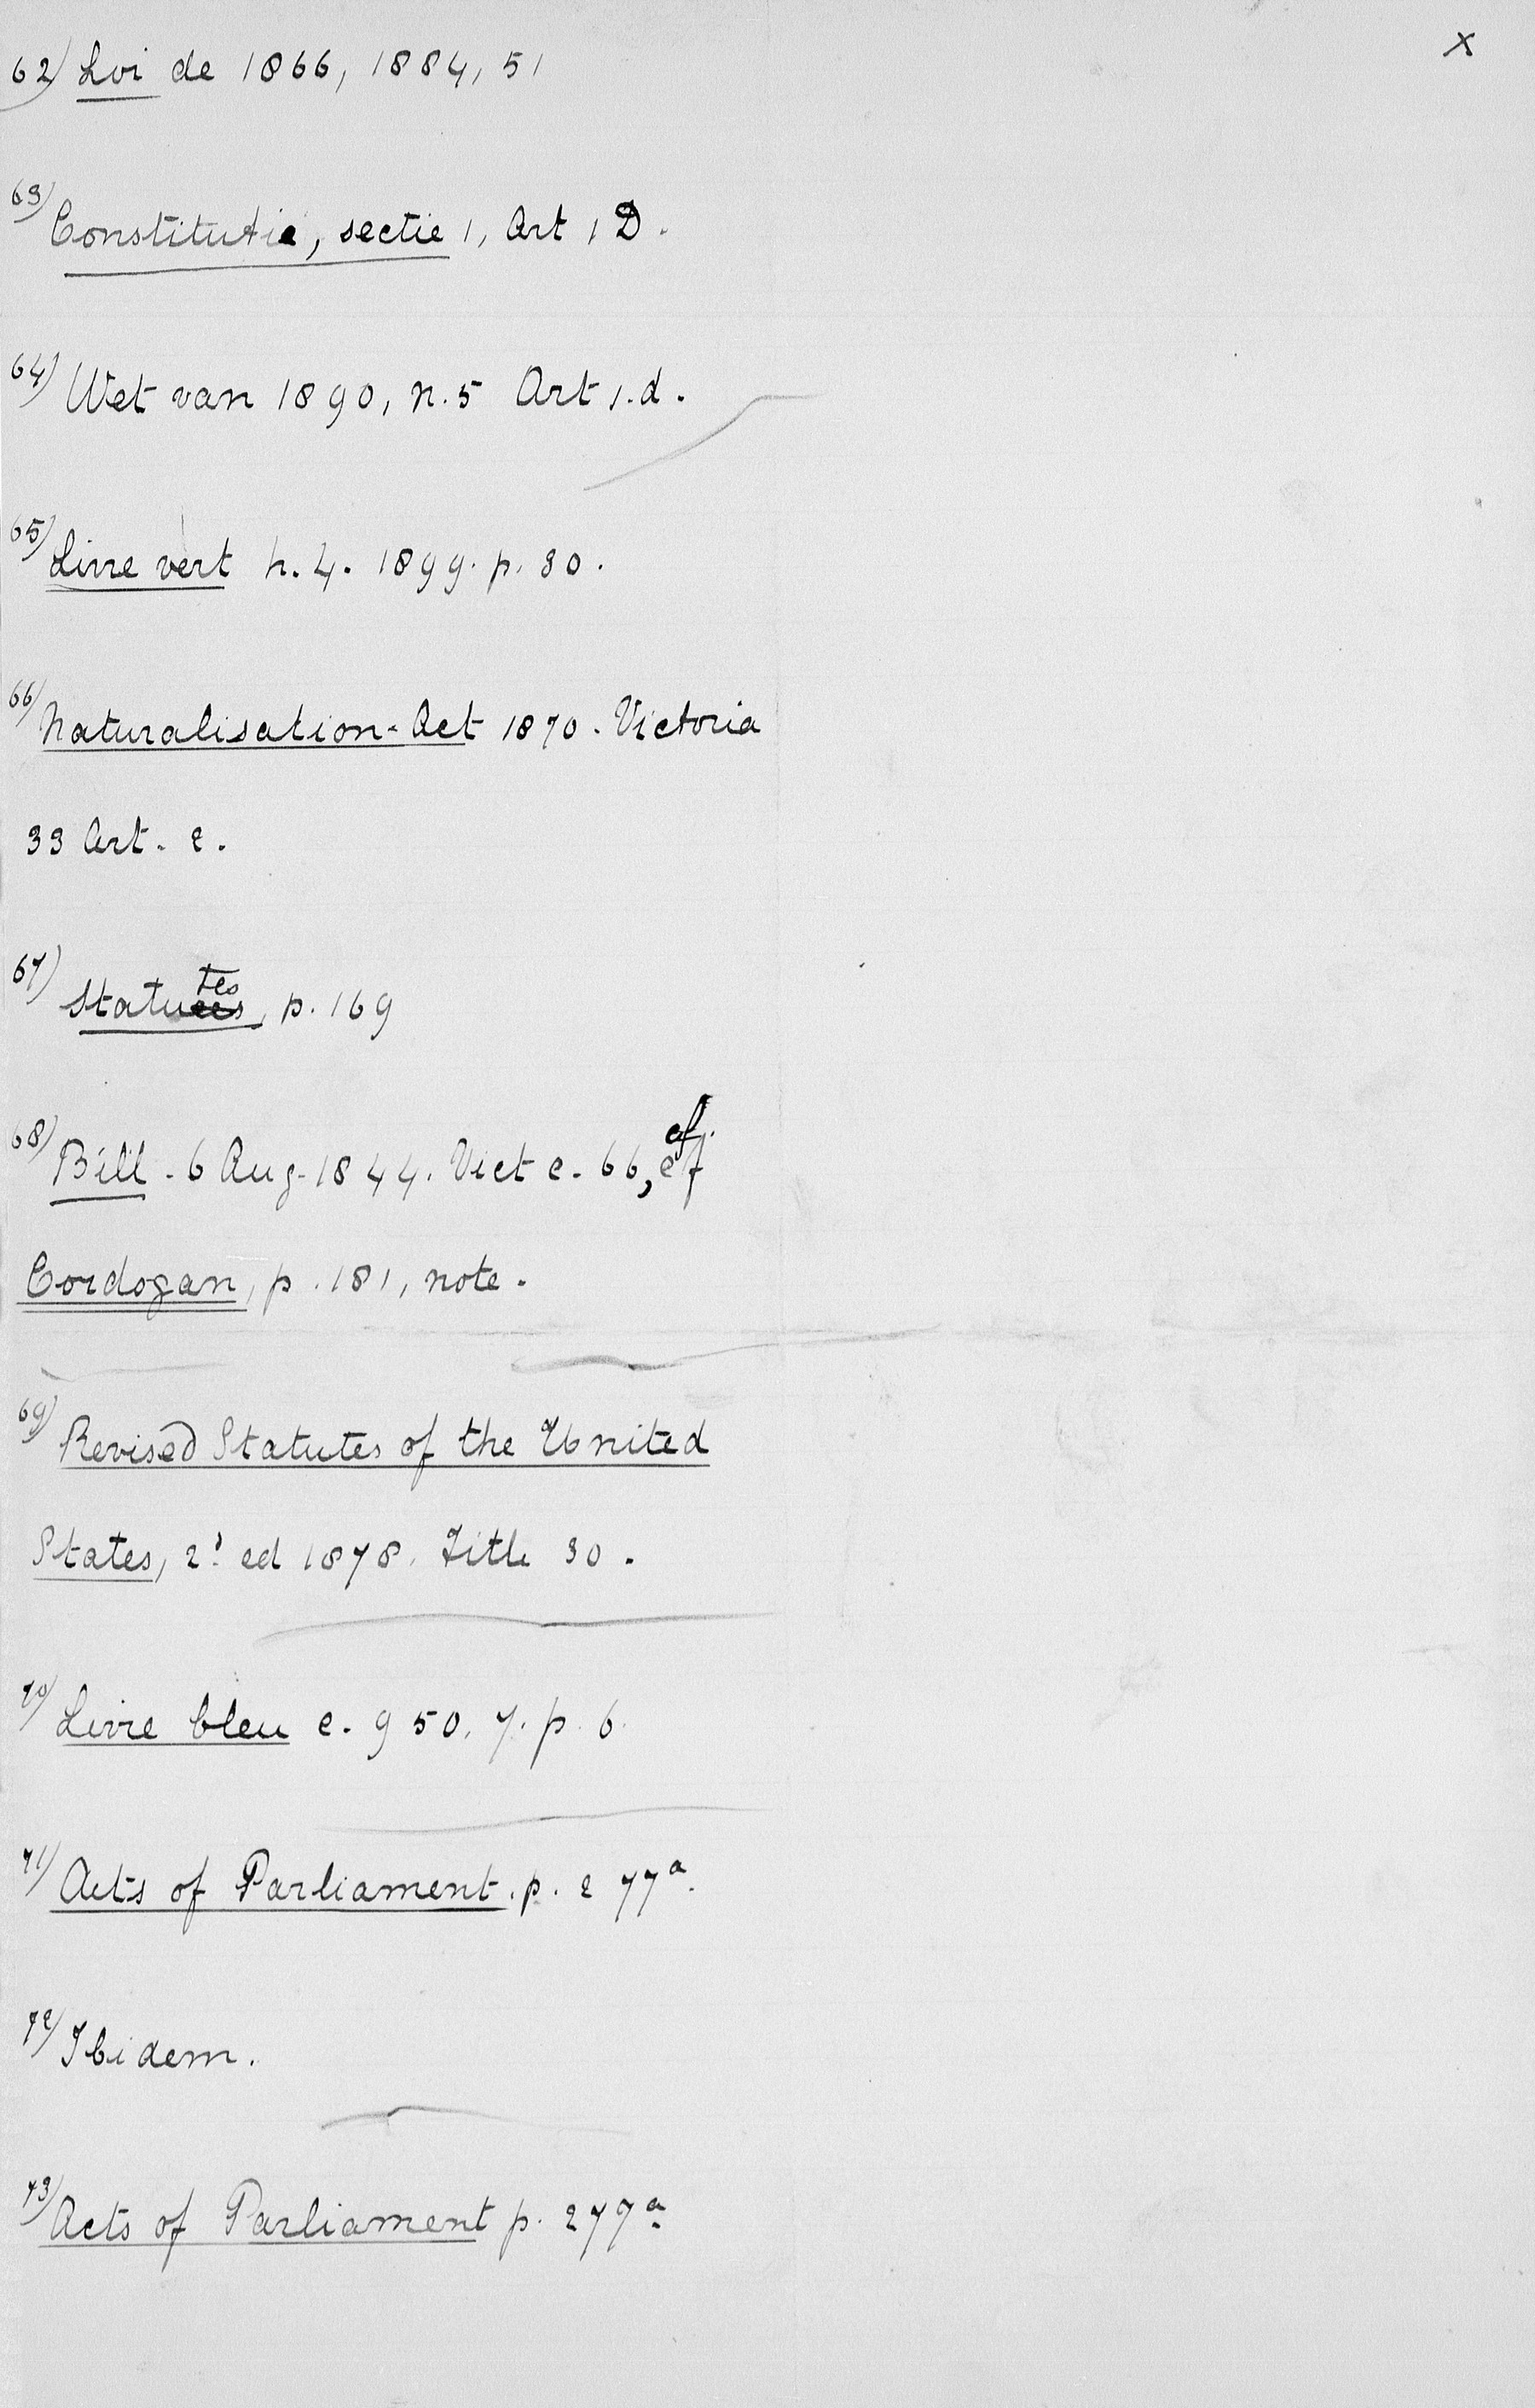 x
62) Loi de 1866, 1884, 51
63) Constitutie, sectie 1, Art 1 D.
64) Wet van 1890, n. 5 Art 1. d.
65) Livre vert n. 4. 1899. p. 30.
66) Naturalisation-Act 1870. Victoria
33 Art. 2.
67) Statutes, p. 169
68) Bill. 6 Aug. 1844. Vict c. 66, cf
Cordogan, p. 181, note.
69) Revised Statutes of the United
States, 2d ed 1878. Title 30.
70) Livre bleu c. 950. 7. p. 6.
71) Acts of Parliament. p. 277a.
72) Ibidem.
73) Acts of Parliament p. 277a